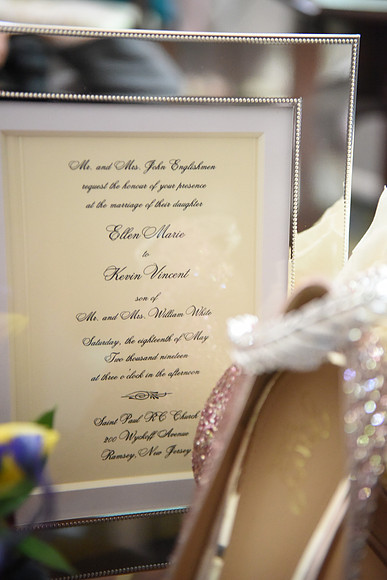 Mr. and Mrs. John Englishmen
request the honour of your presence
at the marriage of their daughter
Ellen Marie
to
Kevin Vincent
son of
Mr. and Mrs. William White
Saturday, the eighteenth of May
Two thousand nineteen
at three o'clock in the afternoon
Saint Paul RC Church
200 Wyckoff Avenue
Ramsey, New Jersey